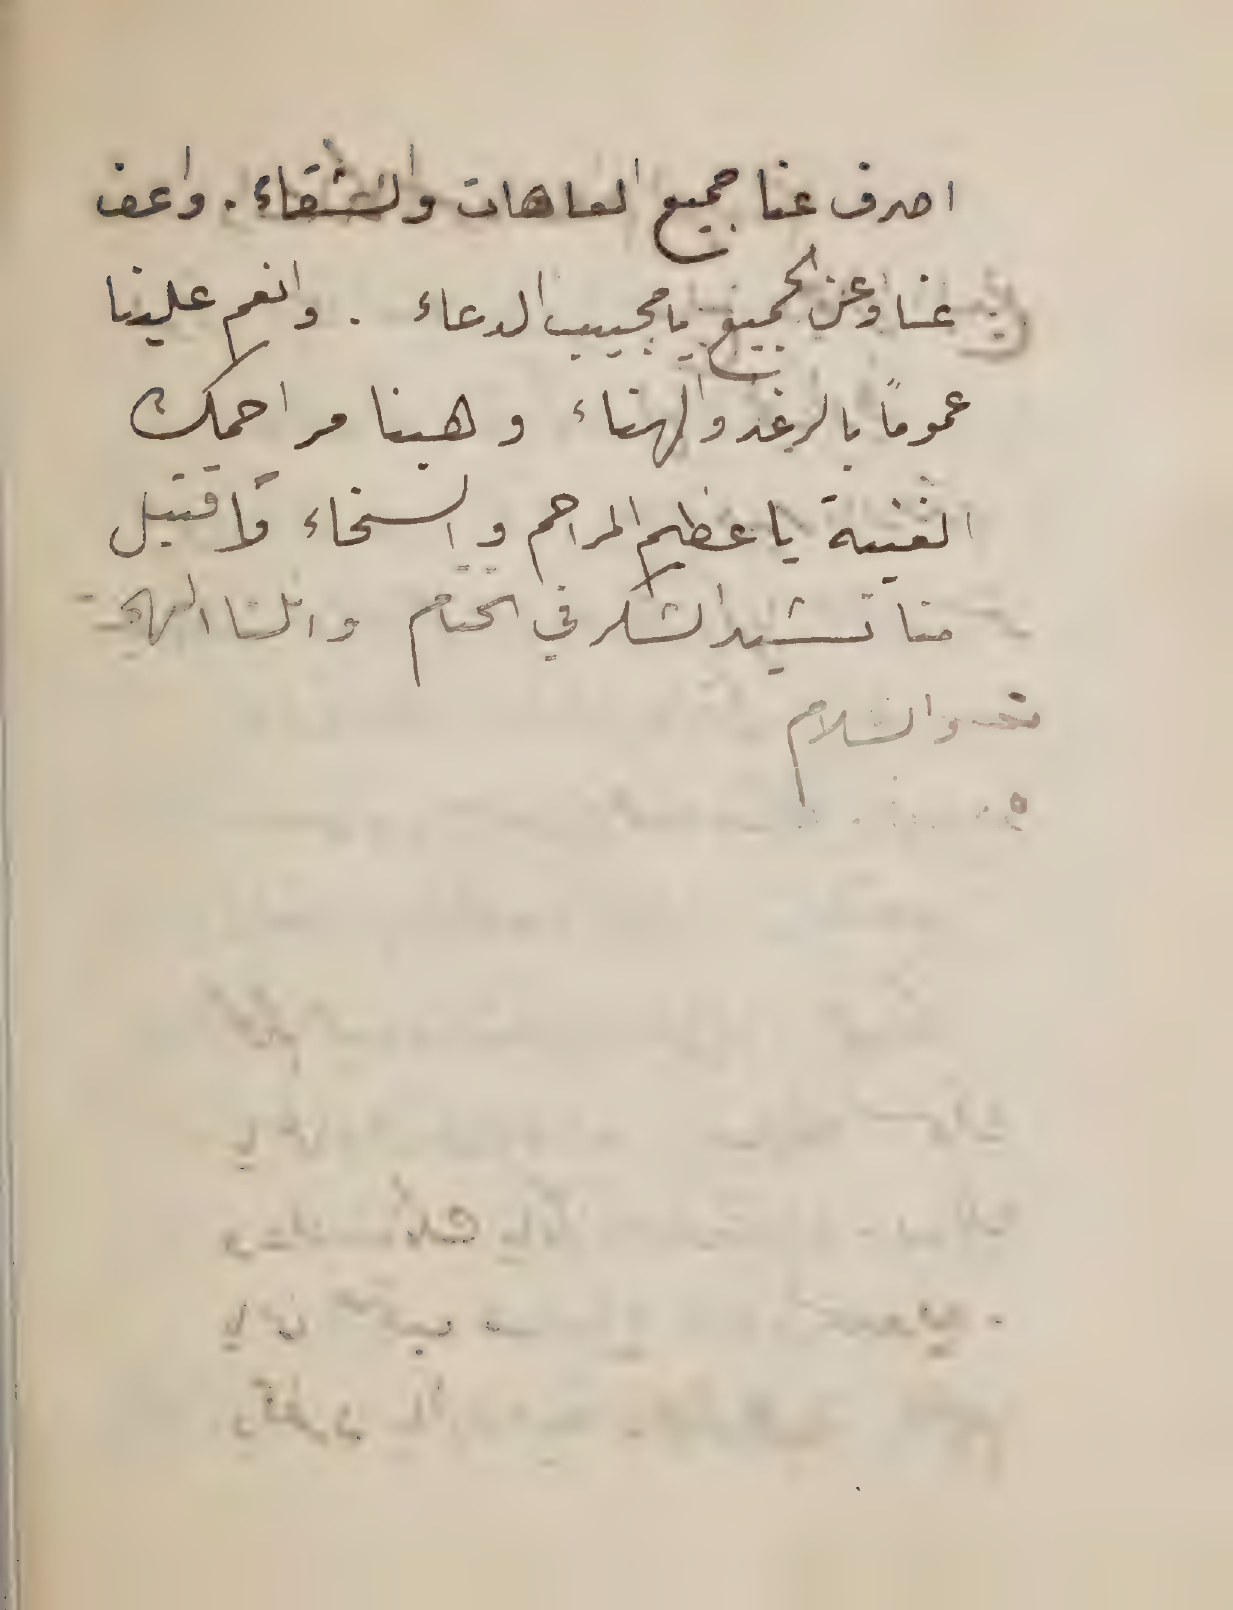 اصرف عنا جميع العاهات والشقاء . واعف
عنا وعن الجميع يا مجيب الدعاء . وانعم علينا
عموماً بالرغد والهناء وهبنا مراحمك
الغنية يا عظيم المراحم والسخاء واقتبل
منا نشيد الشكر في الختام وانلنا البهجة
والسلام